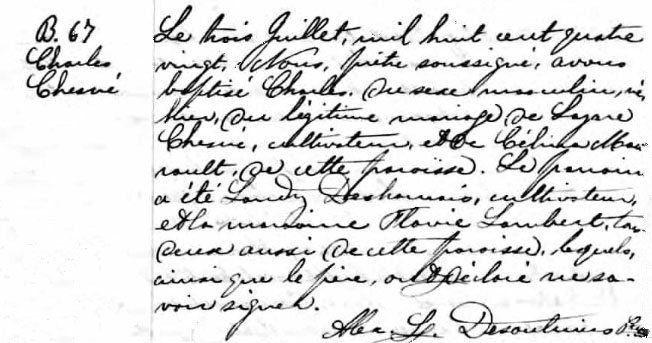 B. 67
Charles
Chesné
Le trois Juillet, mil huit cent quatre
vingt, Nous, prêtre soussigné, avons
baptisé Charles, du sexe masculin, né
hier, du légitime mariage de Lazare
Chesné, cultivateur, et de Célina Mar
rault, de cette paroisse. Le parrain
a été Landry Deshamais, cultivateur,
et la marraine Flavie Lambert, tous
deux aussi de cette paroisse, lesquels,
ainsi que le père, ont déclaré ne sa-
voir signer.
Alex. L. Desaulniers Ptre